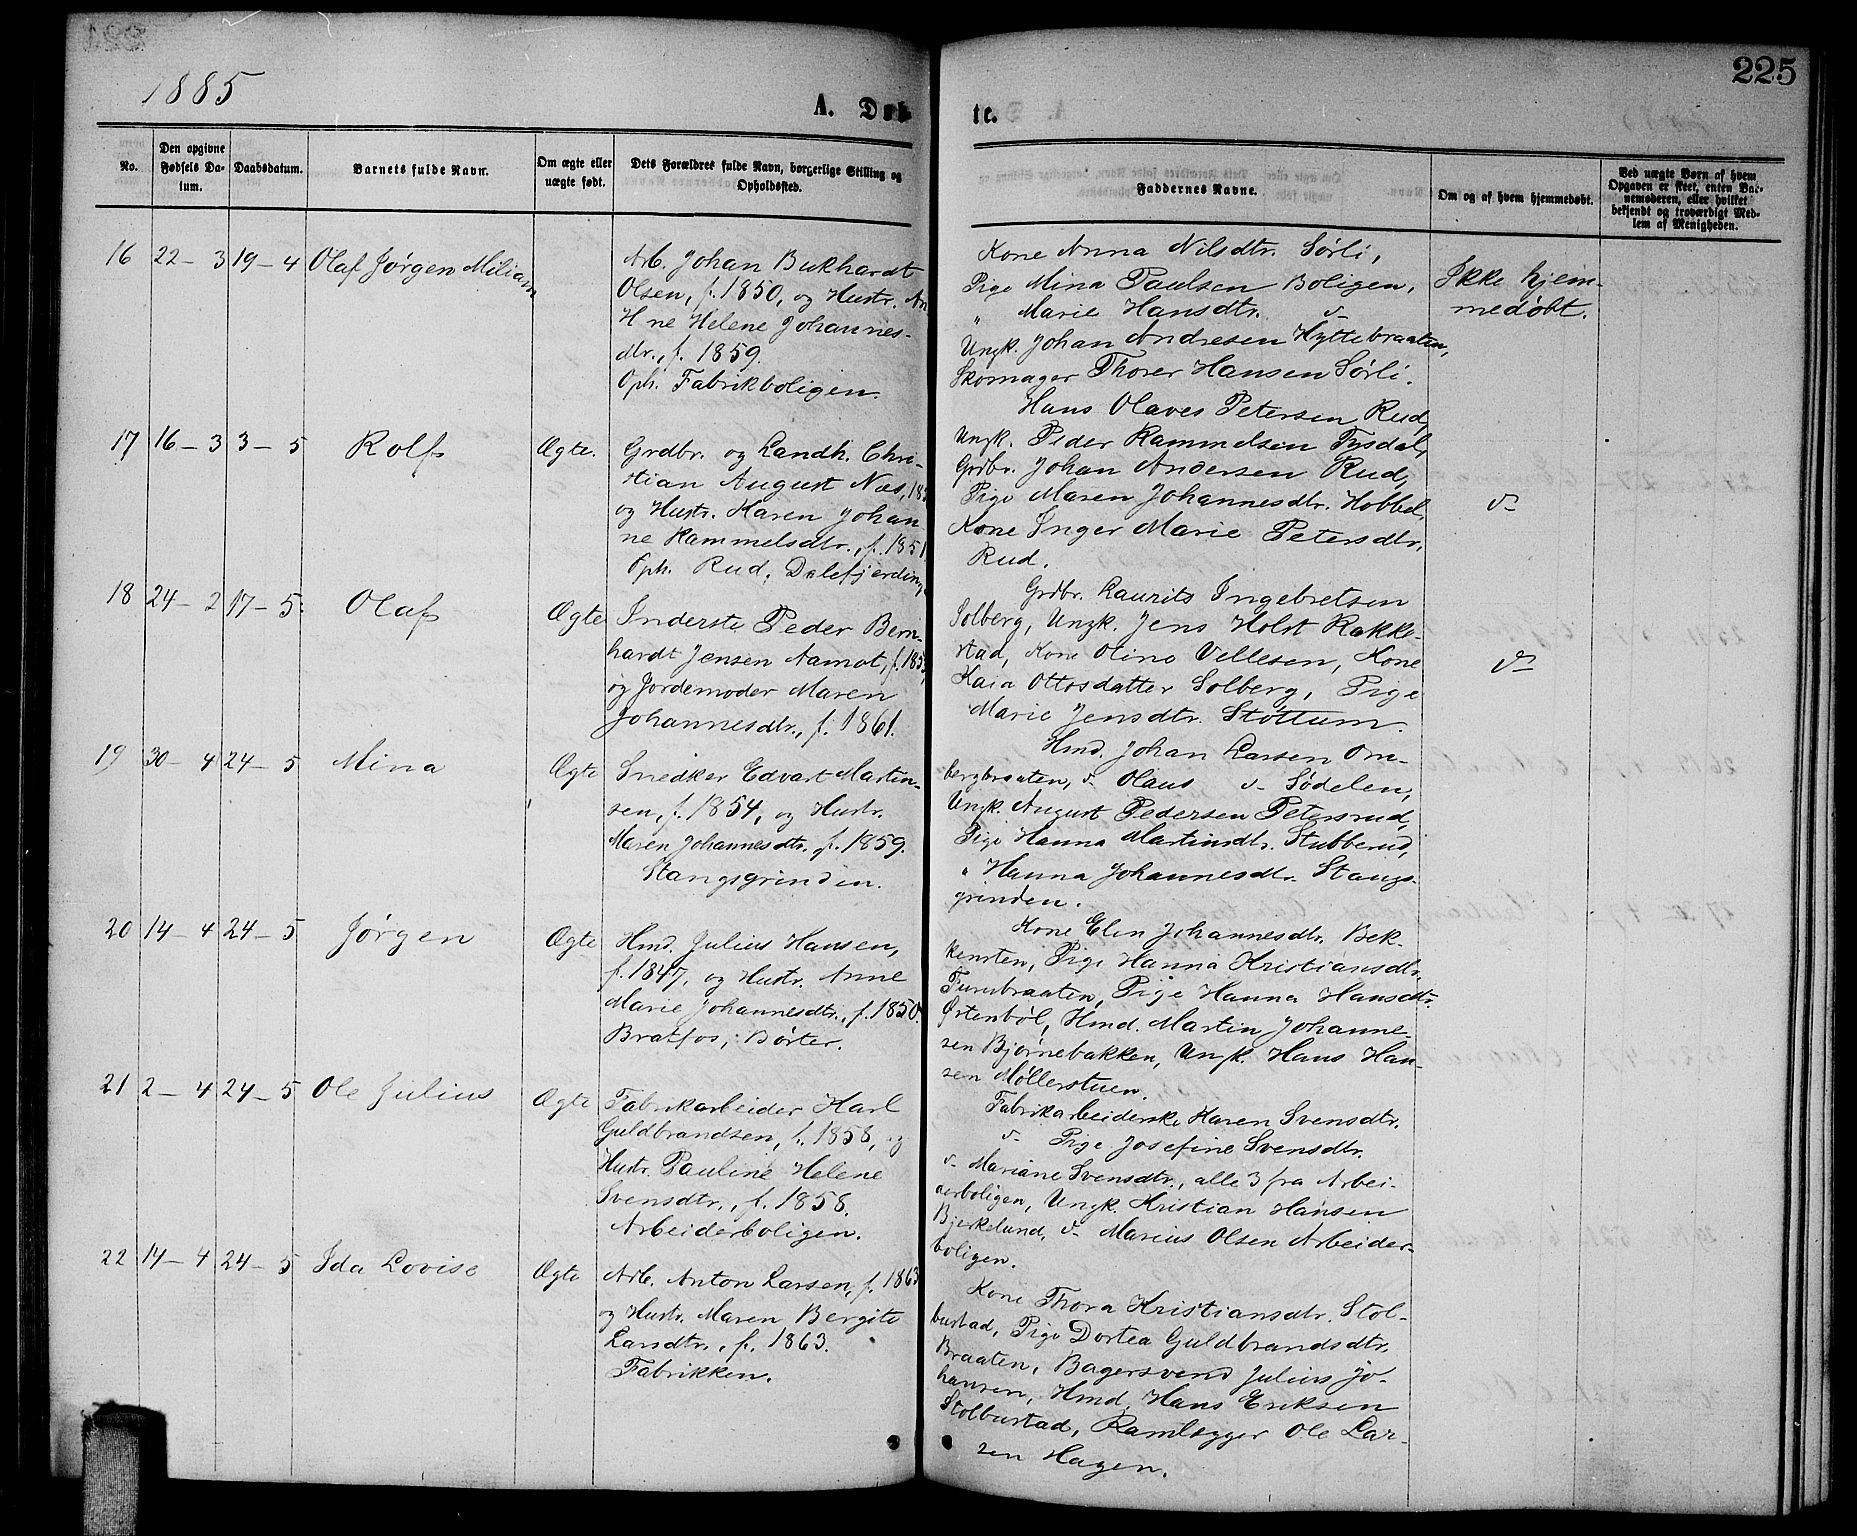 1885
225
A. Døb
te.
No.
Den opgivne
Fødsels Da-
tum.
Daabsdatum.
Barnets fulde Navn.
Om ægte eller
uægte født.
Dets Forældres fulde Navn, borgerlige Stilling og
Opholdssted.
Faddernes Navne.
Om og af hvem hjemmedøbt.
Ved uægte Børn af hvem
Opgaven er skeet, enten Bar-
nemoderen, eller hvilket
bekjendt og troværdigt Med-
lem af Menigheden.
16 22-3 19-4 Olaf Jørgen Miliam
Arb. Johan Bukhardt
Olsen, f. 1850, og Hustr. An
H ne Helene Johannes-
dtr., f. 1859.
Oph. Fabrikboligen.
Kone Anna Nilsdtr. Sørli,
Pige Mina Paulsen Boligen,
" Marie Hansdtr. v-
Ungk. Johan Andresen Hyttebraaten,
Skomager Thorer Hansen Sørli.
Ikke hjem-
medøbt.
17 16-3 3-5 Rolf Ægte.
Grdbr. og Landh. Chri-
stian August Næs,
og Hustr. Karen Johan-
ne Rammelsdtr., f. 1851
Oph. Rud, Dalefjerding
Hans Olaves Petersen Rud,
Ungk. Peder Rammelsen Tysdal,
Grdbr. Johan Andersen Rud,
Pige Maren Johannesdtr. Hobbel,
Kone Inger Marie Petersdtr.
Rud.
v-
18 24-2 17-5 Olaf Ægte
Inderste Peder Bern-
hardt Jensen Aamot, f. 185
og Jordemoder Maren
Johannesdtr., f. 1861.
Grdbr. Laurits Ingebretsen
Solberg, Ungk. Jens Holst Rakke-
stad, Kone Oline Vellesen, Kone
Kaia Ottosdatter Solberg, Pige
Marie Jensdtr. Støttum.
v-
19 30-4 24-5 Mina Ægte
Snedker Edvart Martin-
sen, f. 1854, og Hustr.
Maren Johannesdtr. f. 1859.
Stangsgrinden.
Hmd. Johan Larsen Om-
bergbraaten, v- Olaus v- Sødelen,
Ungk. August Pedersen Petersrud,
Pige Hanna Martinsdtr. Stubberud,
" Hanna Johannesdtr. Stangs-
grinden.
20 14-4 24-5 Jørgen Ægte
Hmd. Julius Hansen,
f. 1847, og Hustr. Anne
Marie Johannesdtr., f. 1850.
Bratfos, Børter.
Kone Elin Johannesdtr. Bek-
kensten, Pige Hanna Kristiansdtr.
Furubraaten, Pige Hanna Hansdtr.
Østenbøl, Hmd. Martin Johanne-
sen Bjørnebakken, Ungk. Hans Han-
sen Møllerstuen.
21 2-4 24-5 Ole Julius Ægte
Fabrikarbeider Karl
Guldbrandsen, f. 1858, og
Hustr. Pauline Helene
Svensdtr., f. 1858.
Arbeiderboligen.
Fabrikarbeiderske Karen Svensdtr.
v- Pige Josefine Svensdtr.
v- Mariane Svensdtr., alle 3 fra Arbei-
derboligen, Ungk. Kristian Hansen
Bjerkelund, v- Marius Olsen Arbeider-
boligen.
22 14-4 24-5 Ida Lovise Ægte
Arb. Anton Larsen, f. 1863
og Hustr. Maren Bergite
Larsdtr., f. 1863.
Fabrikken.
Kone Thora Kristiansdtr. Stol-
bustad, Pige Dortea Guldbrandsdtr.
Braaten, Bagersvend Julius Jo-
hansen, Hmd. Hans Eriksen
Stolbustad, Ramlægger Ole Lar-
sen Hagen.